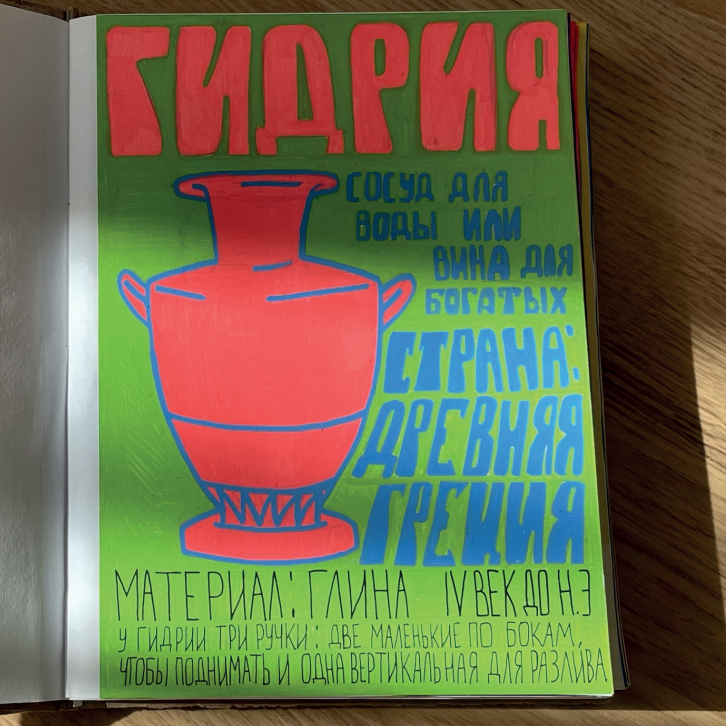 ГИДРИЯ
СОСУД ДЛЯ
ВОДЫ ИЛИ
ВИНА ДЛЯ
БОГАТЫХ
СТРАНА:
ДРЕВНЯЯ
ГРЕЦИЯ
МАТЕРИАЛ: ГЛИНА IV ВЕК ДО Н.Э
У ГИДРИИ ТРИ РУЧКИ: ДВЕ МАЛЕНЬКИЕ ПО БОКАМ,
ЧТОБЫ ПОДНИМАТЬ И ОДНА ВЕРТИКАЛЬНАЯ ДЛЯ РАЗЛИВА